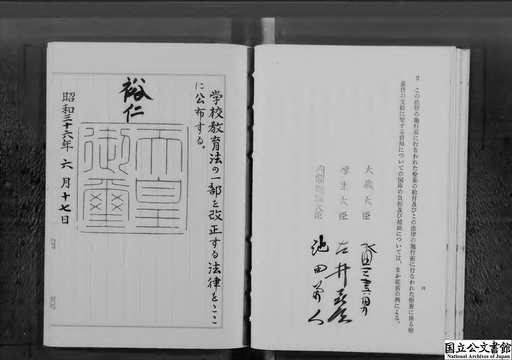 3 この法律の施行前に行なわれた療養の給付及びこの法律の施行前に行なわれた療養に係る療
養費の支給に要する費用についての国庫の負担及び補助については、なお従前の例による。
大蔵大臣
厚生大臣
内閣総理大臣
池田勇人
学校教育法の一部を改正する法律をここ
に公布する。
裕仁
天皇
御璽
昭和三十六年六月十七日
国立公文書館
National Archives of Japan